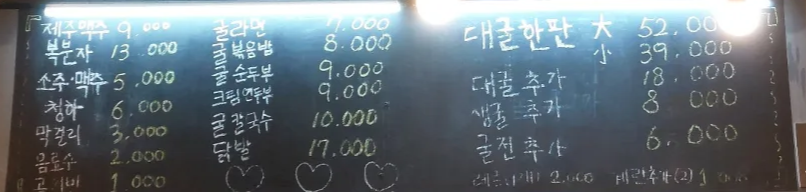 제주맥주 9.000
복분자 13.000
소주·맥주 5.000
청하 6.000
막걸리 3.000
음료수 2.000
1 000
굴라면 7.000
굴볶음밥 8.000
굴순두부 9.000
크림연두부 9.000
굴칼국수 10.000
닭발 17.000
대굴한판 大 52.000
小 39.000
대굴추가 18.000
생굴추가 8 000
굴전추가 6.000
2.000 계란추가(2) 1